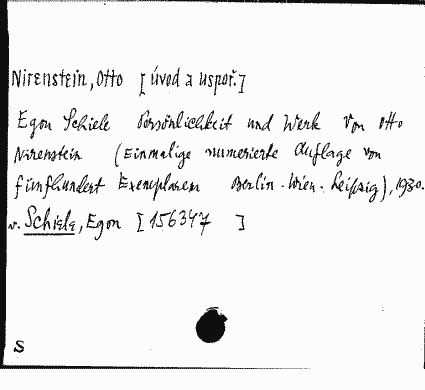 Nirenstein, Otto [úvod a uspoř.]
Egon Schiele Persönlichkeit und Werk von Otto
Nirenstein (Einmalige numerierte Auflage von
fünfhundert Exemplaren Berlin - Wien - Leipzig), 1930.
v. Schiele, Egon [156347 ]
S